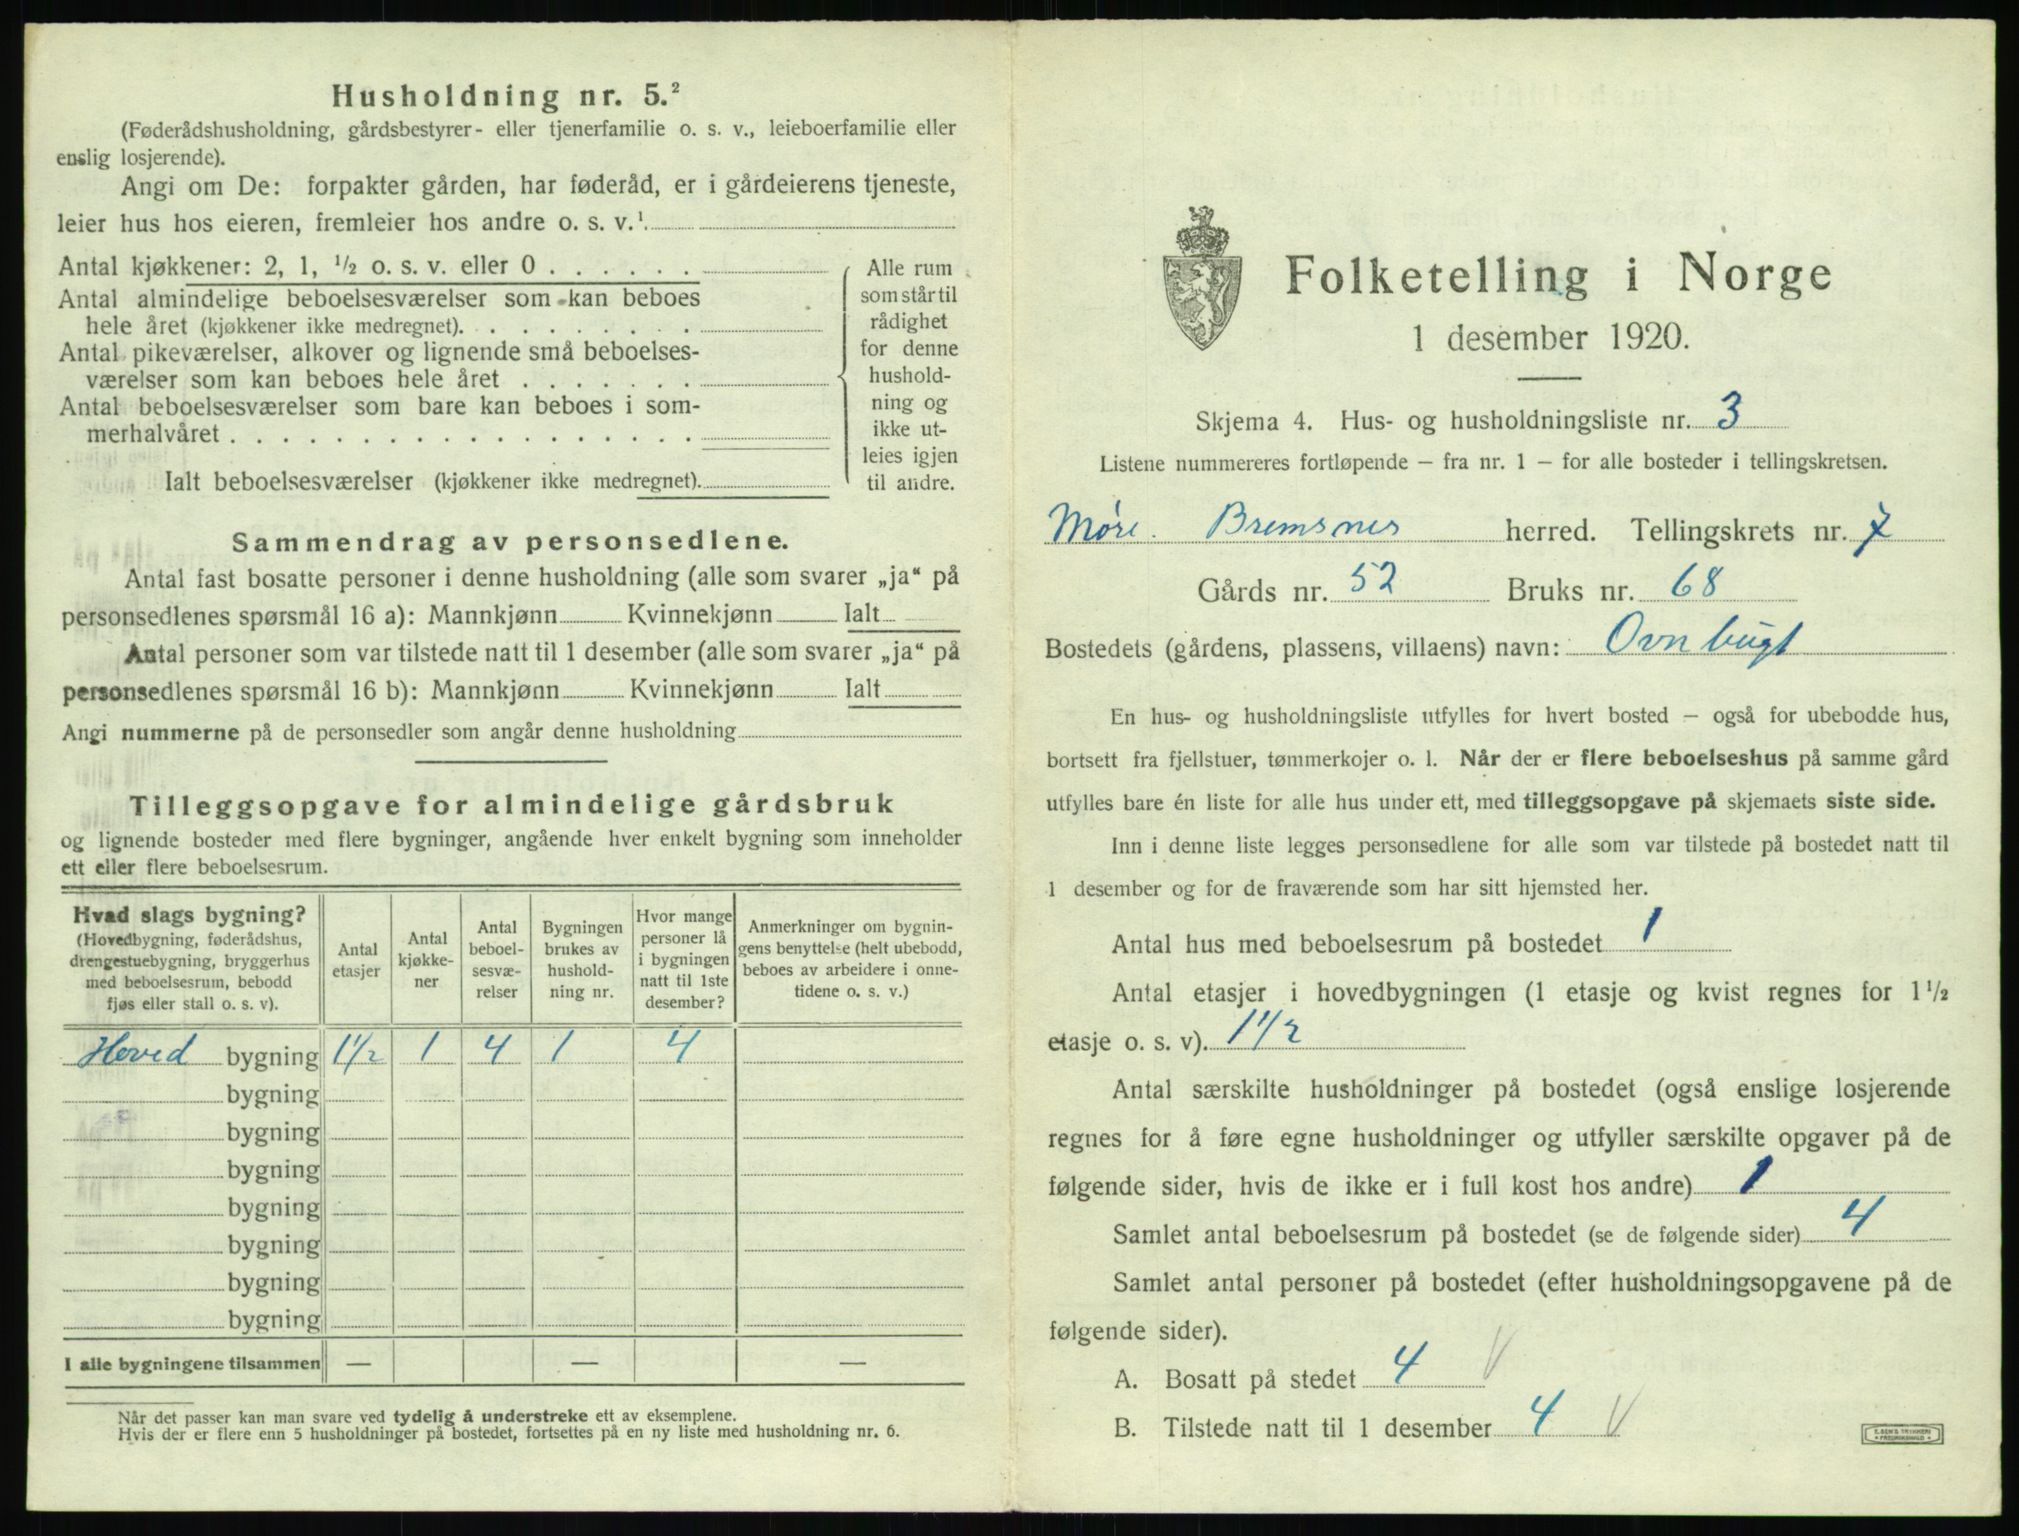 Husholdning nr. 5.²
(Føderådshusholdning, gårdsbestyrer- eller tjenerfamilie o. s. v., leieboerfamilie eller
enslig losjerende).
Angi om De: forpakter gården, har føderåd, er i gårdeierens tjeneste,
leier hus hos eieren, fremleier hos andre o. s. v.¹
Antal kjøkkener: 2, 1, ½ o. s. v. eller 0 . . . . . .
Antal almindelige beboelsesværelser som kan beboes
hele året (kjøkkener ikke medregnet). . . . . . . . .
Antal pikeværelser, alkover og lignende små beboelses-
værelser som kan beboes hele året . . . . . . .
Antal beboelsesværelser som bare kan beboes i som-
merhalvåret . . . . . . . . . . . . . . . . . .
Ialt beboelsesværelser (kjøkkener ikke medregnet).
Alle rum
som står til
rådighet
for denne
hushold-
ning og
ikke ut-
leies igjen
til andre.
Sammendrag av personsedlene.
Antal fast bosatte personer i denne husholdning (alle som svarer „ja“ på
personsedlenes spørsmål 16 a): Mannkjønn Kvinnekjønn Ialt
Antal personer som var tilstede natt til 1 desember (alle som svarer „ja“ på
personsedlenes spørsmål 16 b): Mannkjønn Kvinnekjønn Ialt
Angi nummerne på de personsedler som angår denne husholdning
Tilleggsopgave for almindelige gårdsbruk
og lignende bosteder med flere bygninger, angående hver enkelt bygning som inneholder
ett eller flere beboelsesrum.
Hvad slags bygning?
(Hovedbygning, føderådshus,
drengestuebygning, bryggerhus
med beboelsesrum, bebodd
fjøs eller stall o. s. v).
Antal
etasjer
Antal
kjøkke-
ner
Antal
beboel-
sesvæ-
relser
Bygningen
brukes av
hushold-
ning nr.
Hvor mange
personer lå
i bygningen
natt til 1ste
desember?
Anmerkninger om bygnin-
gens benyttelse (helt ubebodd,
beboes av arbeidere i onne-
tidene o. s. v.)
Hoved bygning 1½ 1 4 1 4
bygning
bygning
bygning
bygning
bygning
bygning
bygning
I alle bygningene tilsammen — — —
Når det passer kan man svare ved tydelig å understreke ett av eksemplene.
Hvis der er flere enn 5 husholdninger på bostedet, fortsettes på en ny liste med husholdning nr. 6.
Folketelling i Norge
1 desember 1920.
Skjema 4. Hus- og husholdningsliste nr. 3
Listene nummereres fortløpende — fra nr. 1 — for alle bosteder i tellingskretsen.
Møre. Bremsnes herred. Tellingskrets nr. 7
Gårds nr. 52 Bruks nr. 68
Bostedets (gårdens, plassens, villaens) navn: Ovnbugt
En hus- og husholdningsliste utfylles for hvert bosted — også for ubebodde hus,
bortsett fra fjellstuer, tømmerkojer o. l. Når der er flere beboelseshus på samme gård
utfylles bare én liste for alle hus under ett, med tilleggsopgave på skjemaets siste side.
Inn i denne liste legges personsedlene for alle som var tilstede på bostedet natt til
1 desember og for de fraværende som har sitt hjemsted her.
Antal hus med beboelsesrum på bostedet 1
Antal etasjer i hovedbygningen (1 etasje og kvist regnes for 1½
etasje o. s. v). 1½
Antal særskilte husholdninger på bostedet (også enslige losjerende
regnes for å føre egne husholdninger og utfyller særskilte opgaver på de
følgende sider, hvis de ikke er i full kost hos andre) 1
Samlet antal beboelsesrum på bostedet (se de følgende sider) 4
Samlet antal personer på bostedet (efter husholdningsopgavene på de
følgende sider).
A. Bosatt på stedet 4 V
B. Tilstede natt til 1 desember 4 V